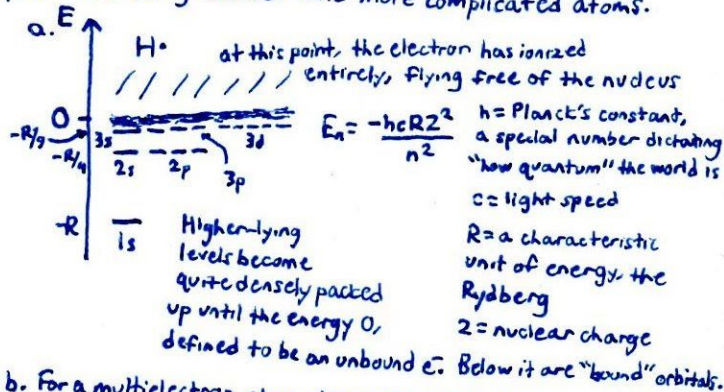 more complicated atoms.
a. E
H•
at this point, the electron has ionized
entirely, flying free of the nucleus
0
-R/9
-R/4
3s
3d
2s
2p
3p
-R
1s
Eₙ = -hcRZ²/n²
h = Planck's constant,
a special number dictating
"how quantum" the world is
c = light speed
R = a characteristic
unit of energy, the
Rydberg
Z = nuclear charge
Higher-lying
levels become
quite densely packed
up until the energy 0,
defined to be an unbound e⁻. Below it are "bound" orbitals.
b. For a multielectron